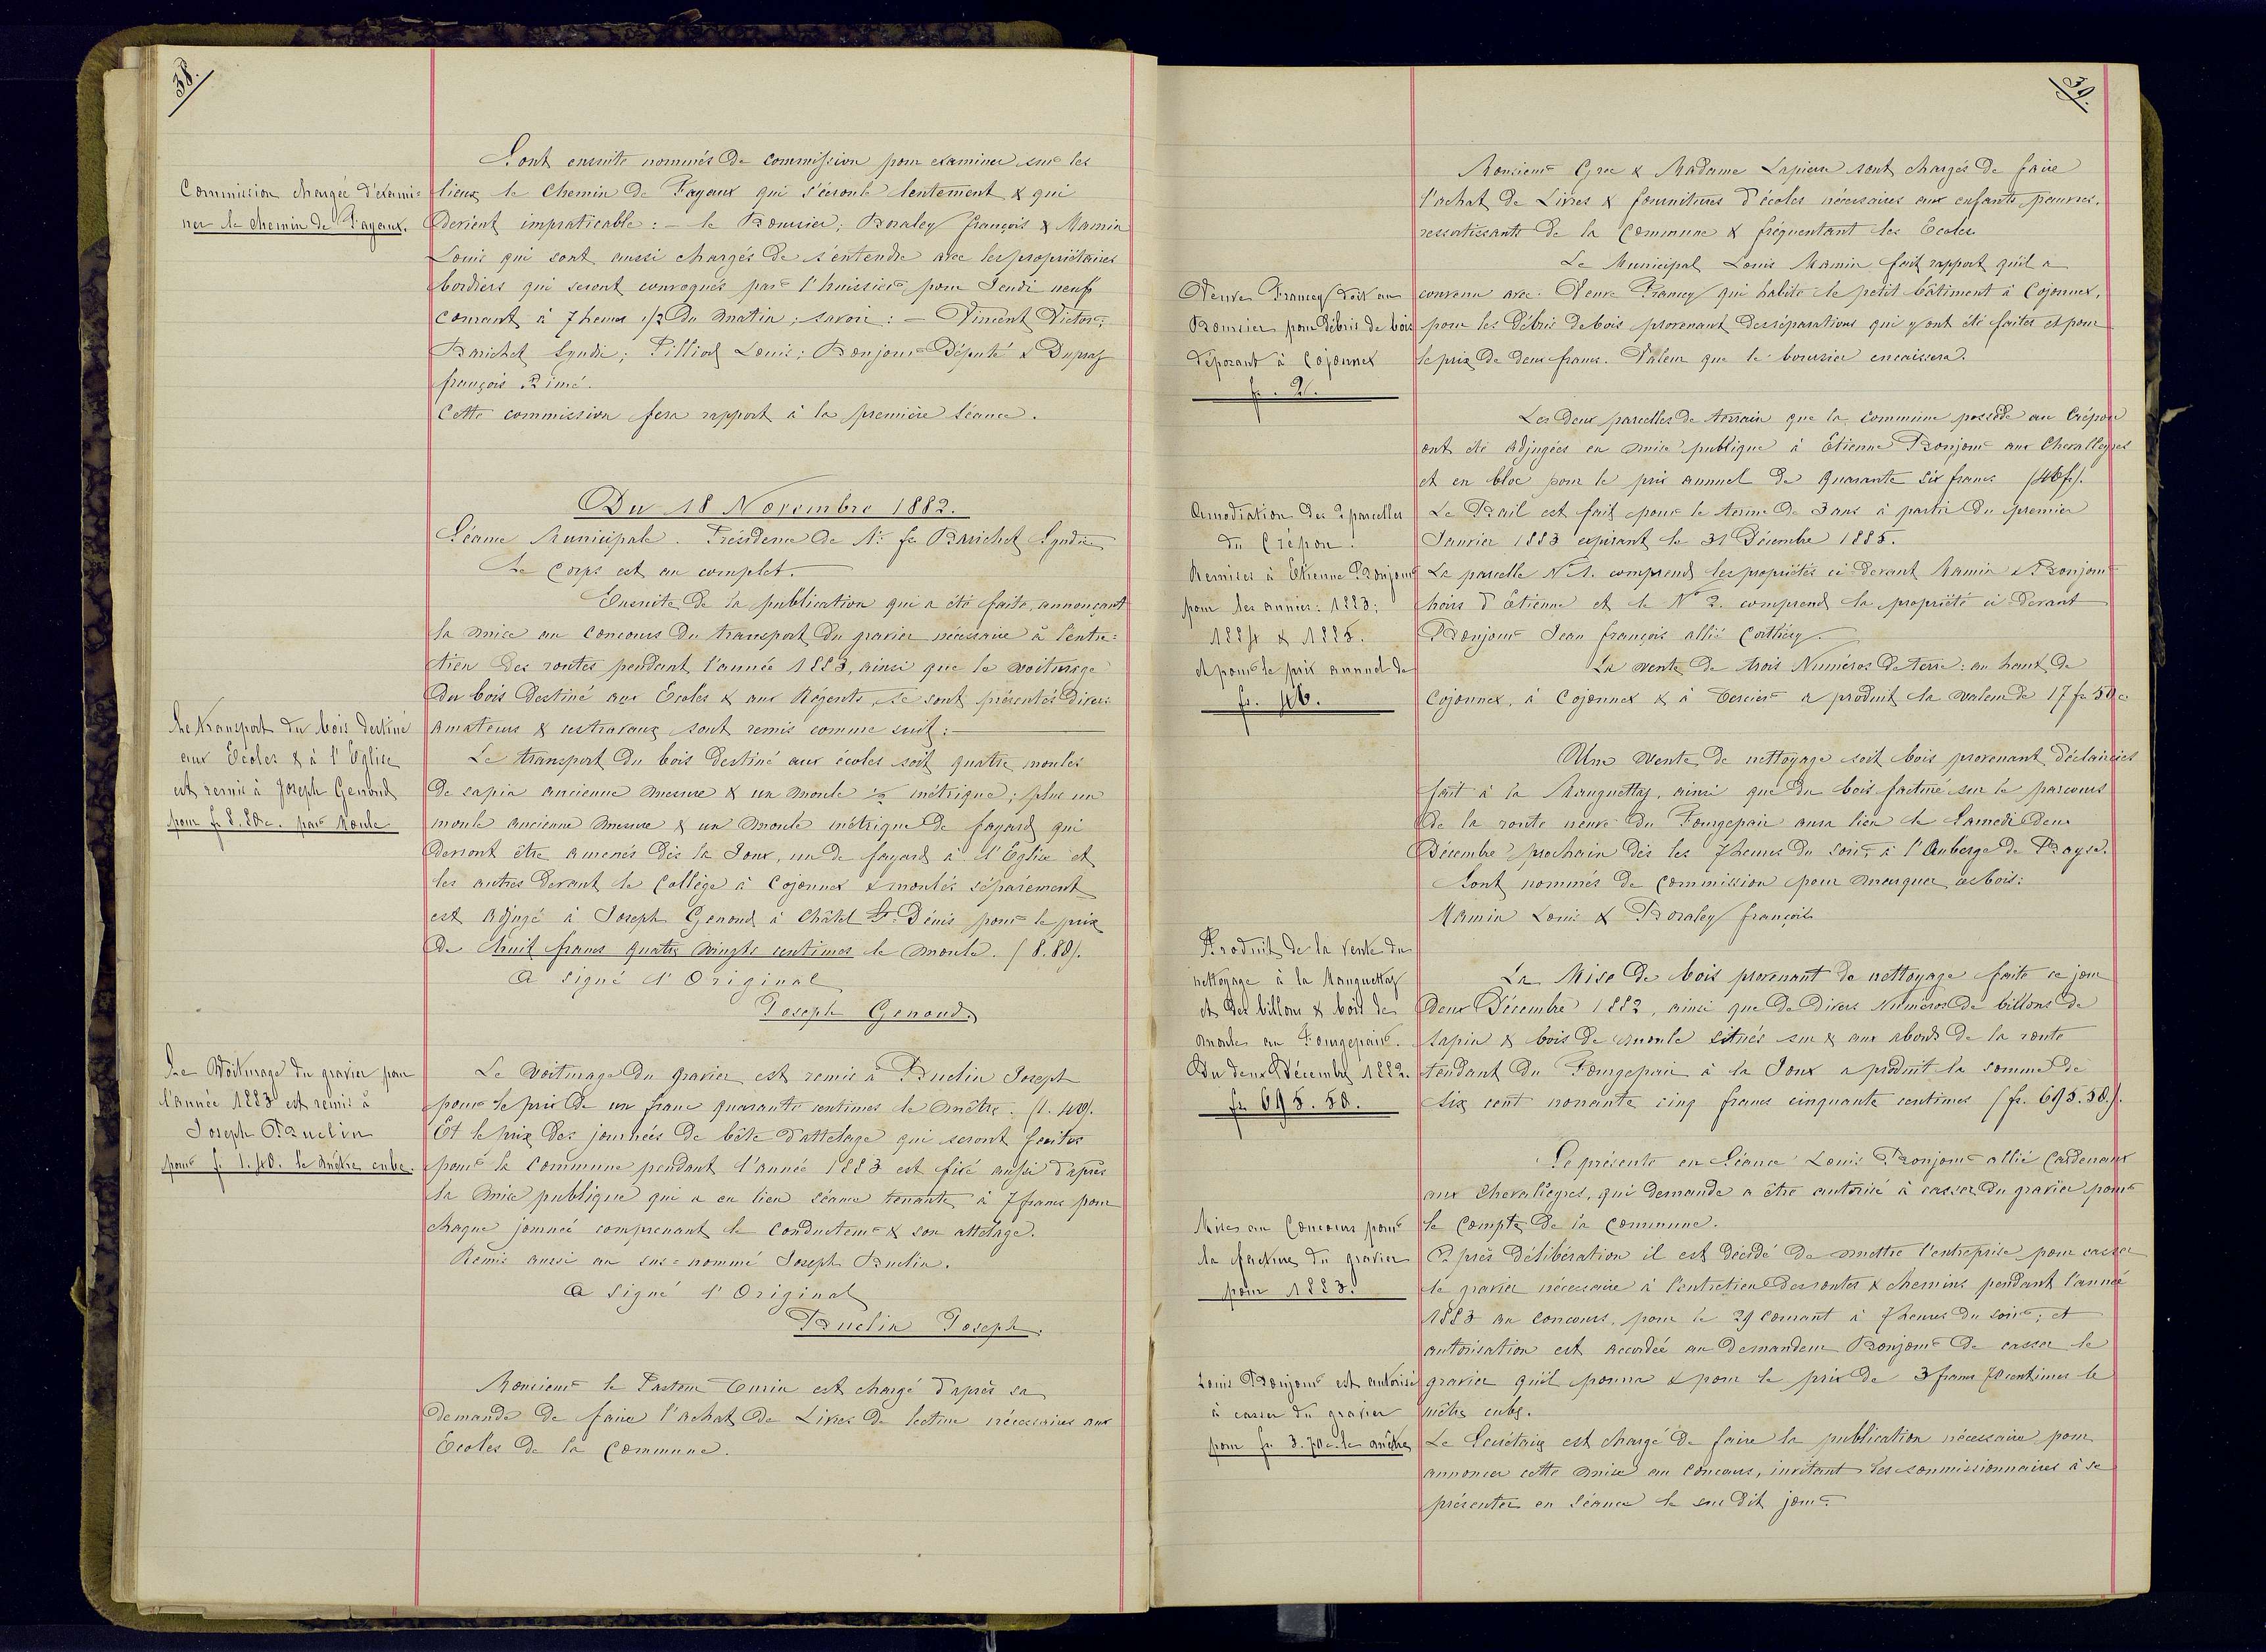 38.
Sont ensuite nommés de commission pour examiner sur les
Commission chargée d'exami=
ner le chemin de Fayaux.
lieux le Chemin de Fayaux qui s'écroule lentement & qui
devient impraticable : — le Boursier; Boraley François & Mamin
Louis qui sont aussi chargés de s'entendre avec les propriétaires
bordiers qui seront convoqués par l'huissier pour Jeudi neuf
courant à 7 heures 1/2 du matin; savoir : — Vincent Victor;
Barichet Syndic; Pilliod Louis; Bonjour Député & Dupraz
françois Aimé.
Cette commission fera rapport à la première Séance.
Du 18 Novembre 1882.
Séance Municipale. Présidence de Mr. fs Barichet Syndic
Le Corps est au complet.
Ensuite de la publication qui a été faite, annonçant
la mise au concours du transport du gravier nécessaire à l'entre=
tien des routes pendant l'année 1883, ainsi que le voiturage
du bois destiné aux Ecoles & aux Régents, se sont présentés divers
amateurs & ces travaux sont remis comme suit : —
Le transport du bois destiné
aux Ecoles & à l'Eglise
est remis à Joseph Genoud
pour fr 8.80 c. par Moule
Le transport du bois destiné aux écoles soit quatre moules
de sapin ancienne mesure & un moule 1/2 métrique; plus un
moule ancienne mesure & un moule métrique de fayard qui
devront être amenés dès la Joux, un de fayard à l'Eglise et
les autres devant le Collège à Cojonnex & moulés séparément
est adjugé à Joseph Genoud à Châtel St. Dénis pour le prix
de huit francs quatre vingts centimes le moule. (8.80).
A Signé l'Original
Joseph Genoud.
Le Voiturage du gravier pour
l'année 1883 est remis à
Joseph Buclin
pour f. 1.40. le mètre cube.
Le voiturage du gravier est remis à Buclin Joseph
pour le prix de un franc quarante centimes le mètre. (1.40).
Et le prix des journées de bête d'attelage qui seront faites
pour la Commune pendant l'année 1883 est fixé aussi d'après
la mise publique qui a eu lieu séance tenante à 7 francs pour
chaque journée comprenant le Conducteur & son attelage.
Remis aussi au sus=nommé Joseph Buclin.
A Signé l'Original
Buclin Joseph.
Monsieur le Pasteur est chargé d'après sa
demande de faire l'achat de Livres de lecture nécessaires aux
Ecoles de la Commune.
39.
Monsieur & Madame Lapierre sont chargés de faire
l'achat de Livres & fournitures d'écoles nécessaires aux enfants pauvres,
ressortissants de la Commune & fréquentant les Ecoles
Le Municipal Louis Mamin fait rapport qu'il a
Veuve Francey doit au
Boursier pour débris de bois
déposant à Cojonnex
fr. 2.
convenu avec Veuve Francey qui habite le petit bâtiment à Cojonnex,
pour les débris de bois provenant des réparations qui y ont été faites et pour
le prix de deux francs. Valeur que le boursier encaissera.
Les deux parcelles de terrain que la Commune possède au Crépon
ont été adjugées en mise publique à Etienne Bonjour aux Chevalleyres
et en bloc pour le prix annuel de quarante six francs (46 fr).
Amodiation des 2 parcelles
du Crépon.
Remises à Etienne Bonjour
pour les années: 1883;
1884 & 1885.
et pour le prix annuel de
fr. 46.
Le Bail est fait pour le terme de 3 ans à partir du premier
Janvier 1883 expirant le 31 Décembre 1885.
La parcelle No. 1. comprend les propriétés ci-devant Mamin & Bonjour
hoirs d'Etienne et le No 2. comprend la propriété ci-devant
Bonjour Jean françois allié Corthésy.
La vente de trois Numéros de terre : au haut de
Cojonnex, à Cojonnex & à a produit la valeur de 17 fr 50 c.
Une vente de nettoyage soit bois provenant d'éclaircies
fait à la Manguettaz, ainsi que du bois façonné sur le parcours
de la route neuve du Fougepair aura lieu le Samedi deux
Décembre prochain dès les 7 heures du soir, à l'Auberge de
Sont nommés de commission pour marquer ces bois:
Mamin Louis & Boraley françois
Produit de la vente du
nettoyage à la Manguettaz
et des billons & bois de
moules au Fougepair.
Du deux Décembre 1882.
fr. 695.50.
La Mise de bois provenant de nettoyage faite ce jour
deux Décembre 1882, ainsi que de divers Numéros de billons de
sapin & bois de moule situés sur & aux abords de la route
tendant du Fougepair à la Joux a produit la somme de
six cent nonante cinq francs cinquante centimes (fr. 695.50).
Se présente en Séance Louis Bonjour allié Cardenaux
aux Chevalleyres, qui demande a être autorisé à casser du gravier pour
le compte de la Commune.
Mises au Concours pour
la facture du gravier
pour 1883.
Après délibération il est décidé de mettre l'entreprise pour casser
le gravier nécessaire à l'entretien des routes & chemins pendant l'année
1883 au concours, pour le 29 courant à 7 heures du soir; et
autorisation est accordée au demandeur Bonjour de casser le
Louis Bonjour est autorisé
à casser du gravier
pour fr. 3.70 c. le mètre
gravier qu'il pourra & pour le prix de 3 francs 70 centimes le
mètre cube.
Le Secrétaire est chargé de faire la publication nécessaire pour
annoncer cette mise au Concours, invitant les soumissionnaires à se
présenter en Séance le sus dit jour.